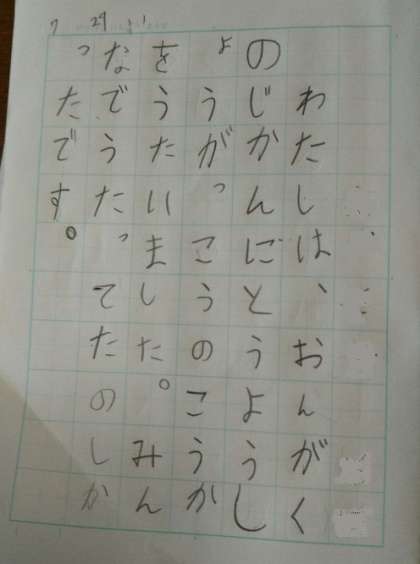 わたしは、おんがく
のじかんにとうようし
ょうがっこうのこうか
をうたいました。みん
なでうたってたのしか
ったです。